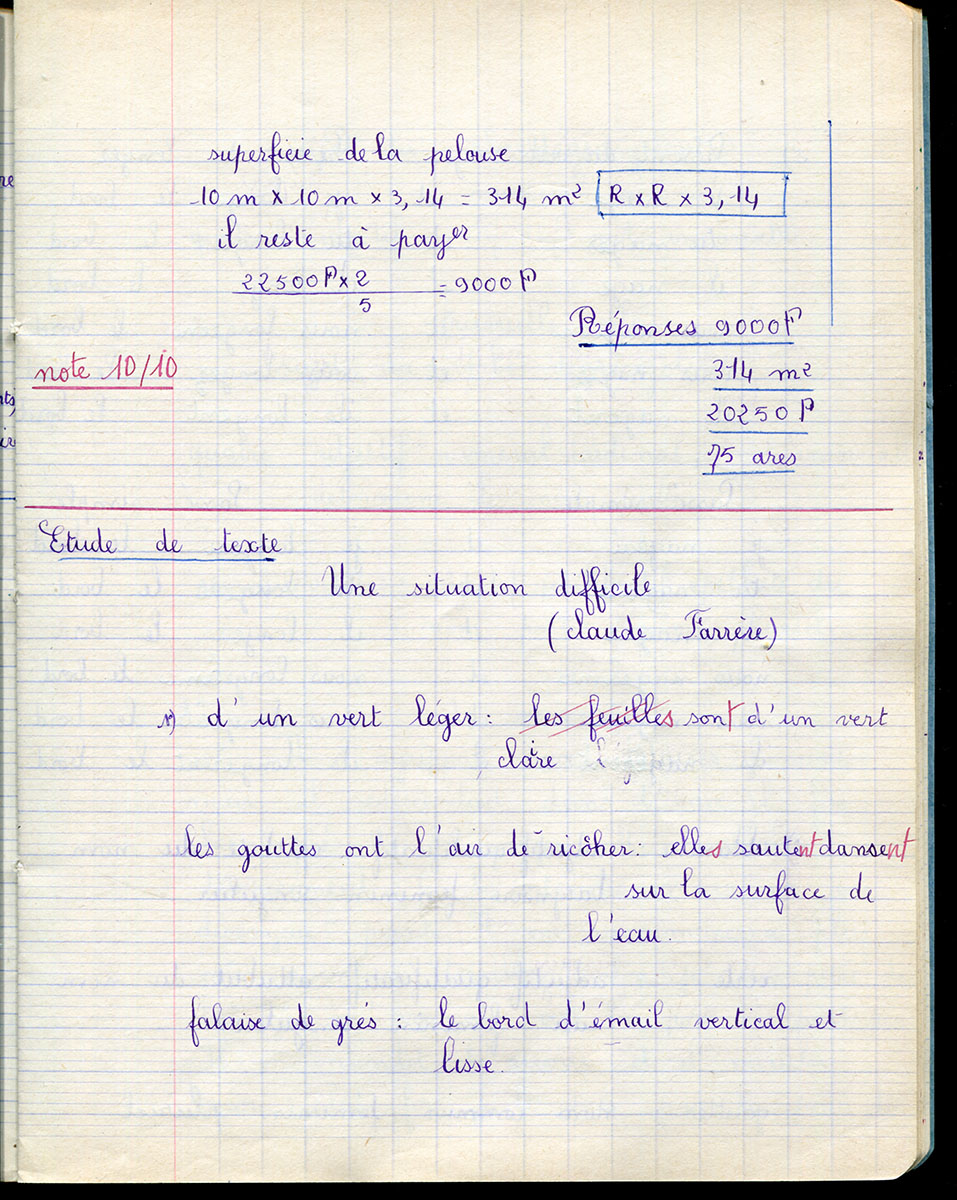 superficie de la pelouse
10 m x 10 m x 3,14 = 314 m² R x R x 3,14
il reste à payer
22500 F x 2 = 9000 F
5
Réponses 9000 F
note 10/10
314 m²
20250 F
75 ares
Etude de texte
Une situation difficile
(claude Farrère)
1) d'un vert léger : les feuilles sont d'un vert
claire
les gouttes ont l'air de ricôher : elles sautent dansent
sur la surface de
l'eau.
falaise de grés : le bord d'émail vertical et
lisse.